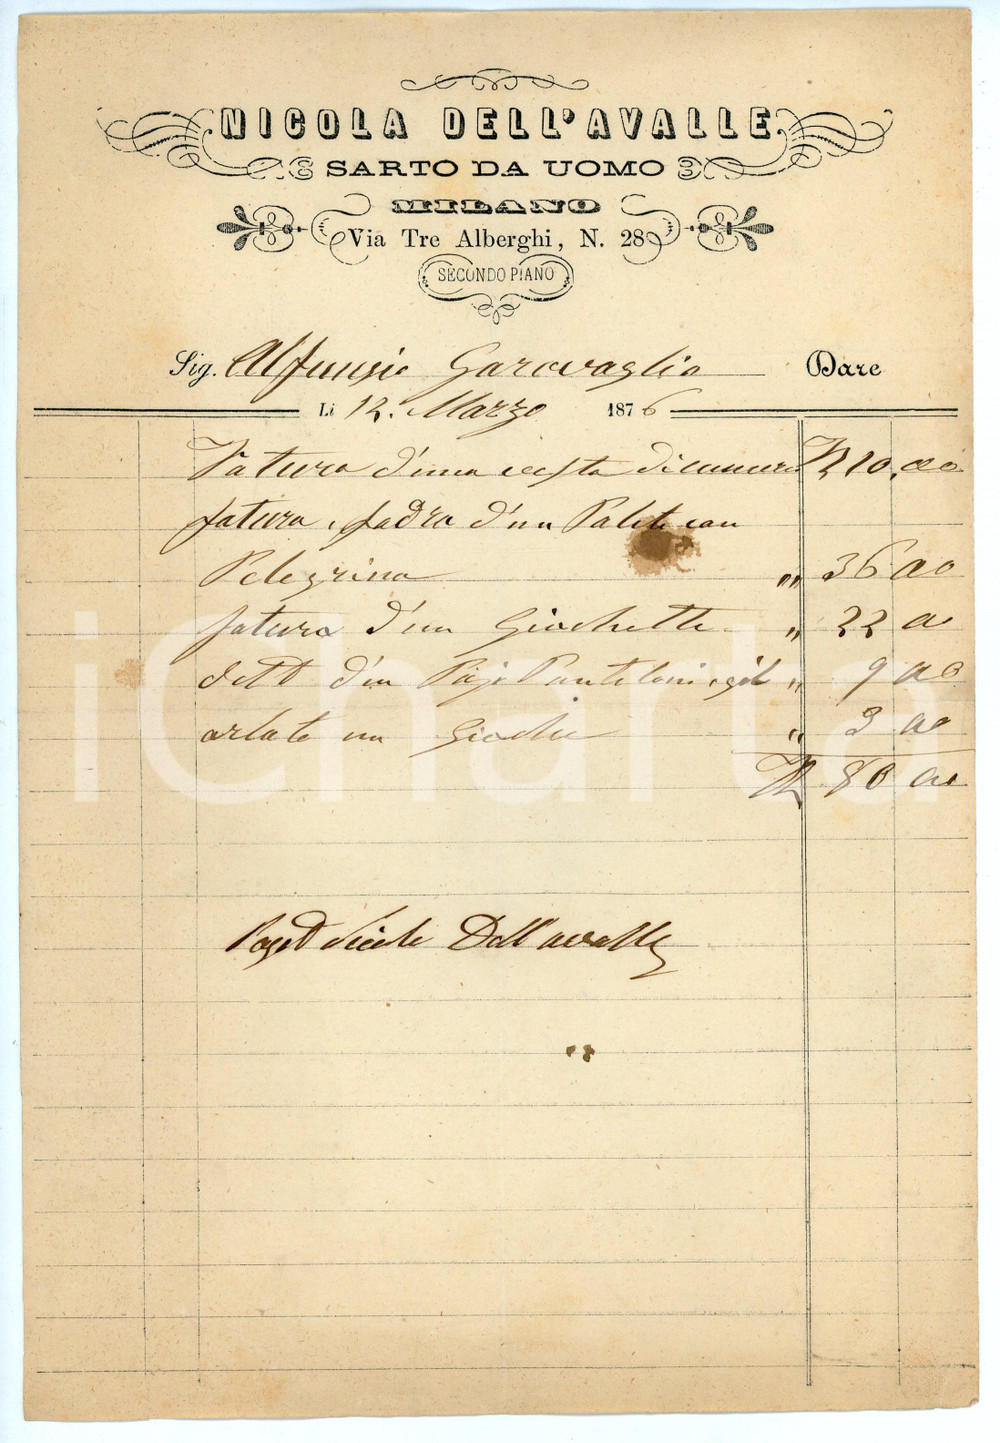 NICOLA DELL'AVALLE
SARTO DA UOMO
MILANO
Via Tre Alberghi, N. 28
SECONDO PIANO
Sig. Alfonsio Garavaglio Dare
Li 12. Marzo 1876
Fatura d'una vesta di camera £ 10.00
fatura e fodra d'un Paletò con
Pelegrina " 36 00
fatura d'un Giachette " 22 00
dett d'un Pajo Pantaloni e gilè " 9 00
orlato un Giachè " 3 00
£ 80 00
Pagat Nicola Dell'avalle
iCharta